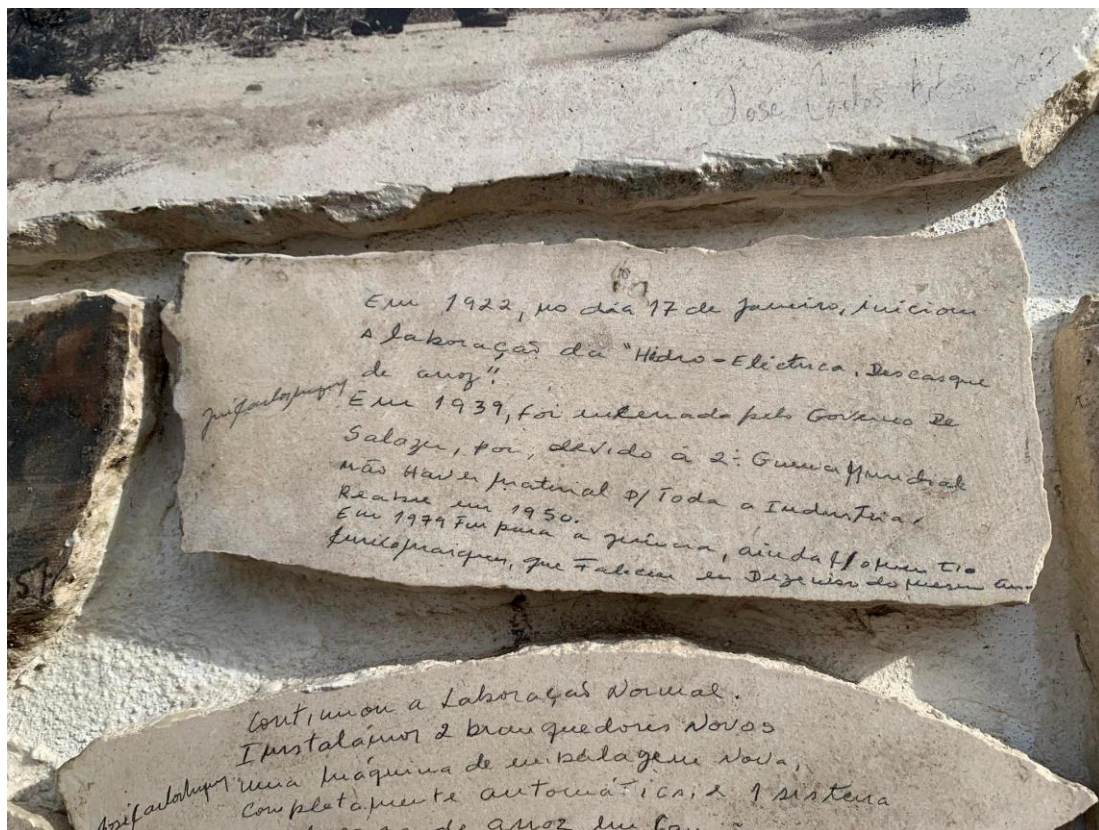 José Carlos
Em 1922, no dia 17 de Janeiro, iniciou
a laboração da "Hidro-Eléctrica, Descasque
de arroz".
Em 1939, foi encerrada pelo Governo de
Salazar, por, devido à 2ª Guerra Mundial
não Haver material p/ Toda a Industria.
Reabre em 1950.
Em 1979 Fui para a gerência, ainda c/ o meu Tio
Marques, que Faleceu em Dezembro do mesmo ano
Continuou a Laboração Normal.
Instalámos 2 branqueadores Novos
uma máquina de embalagem Nova,
completamente automática, e 1 sistema
de arroz em